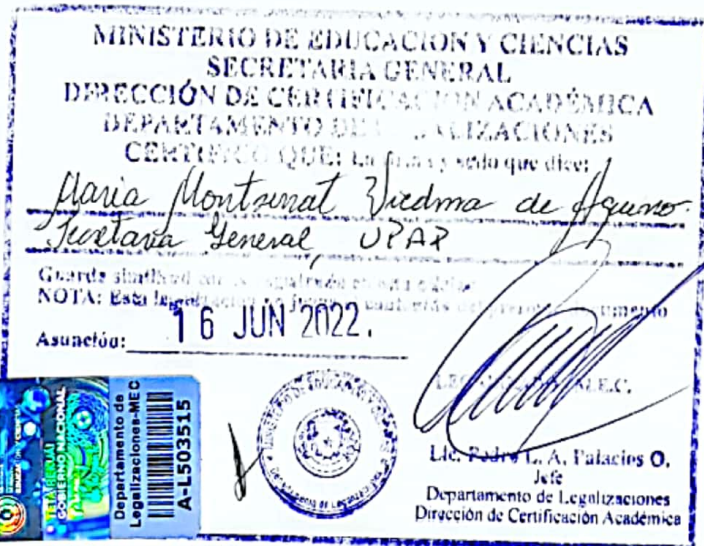 MINISTERIO DE EDUCACION Y CIENCIAS
SECRETARIA GENERAL
DIRECCIÓN DE CERTIFICACION ACADÉMICA
DEPARTAMENTO DE LEGALIZACIONES
CERTIFICO QUE: La firma y sello que dice:
Maria Montserrat Viedma de Aquino
Secretaria General, UPAP
Guarda similitud con
NOTA: Esta legalización no juzga el contenido del presente documento
Asunción: 16 JUN 2022.
M.E.C.
Lic. Pedro L. A. Palacios O.
Jefe
Departamento de Legalizaciones
Dirección de Certificación Académica
GOBIERNO NACIONAL
Departamento de
Legalizaciones-MEC
A-L503515